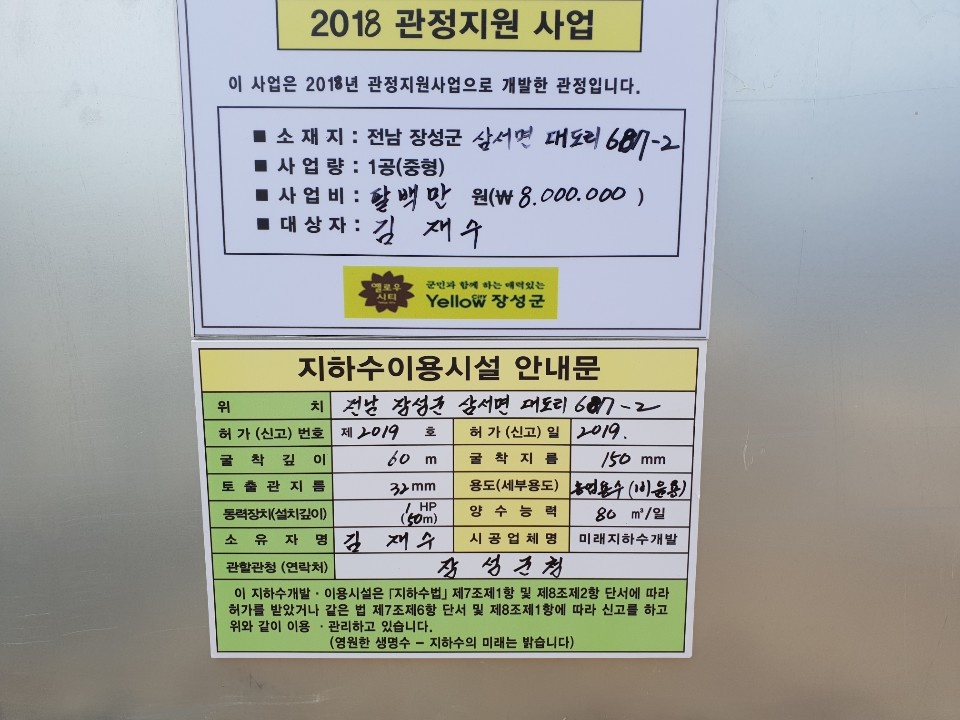 2018 관정지원 사업
이 사업은 2018년 관정지원사업으로 개발한 관정입니다.
■ 소 재 지 : 전남 장성군 삼서면 대도리 687-2
■ 사 업 량 : 1공(중형)
■ 사 업 비 : 팔백만 원(₩8.000.000 )
■ 대 상 자 : 김 재 수
옐로우 시티
군민과 함께 하는 매력있는
Yellow CITY 장성군
지하수이용시설 안내문
위 치 전남 장성군 삼서면 대도리 687-2
허 가 (신고) 번호 제 2019 호 허 가 (신고) 일 2019.
굴 착 깊 이 60 m 굴 착 지 름 150 mm
토 출 관 지 름 32 mm 용도(세부용도) 농업용수 (비음용)
동력장치(설치깊이) 1 HP (50m) 양 수 능 력 80 ㎥/일
소 유 자 명 김 재 수 시 공 업 체 명 미래지하수개발
관할관청 (연락처) 장 성 군 청
이 지하수개발ㆍ이용시설은 「지하수법」 제7조제1항 및 제8조제2항 단서에 따라
허가를 받았거나 같은 법 제7조제6항 단서 및 제8조제1항에 따라 신고를 하고
위와 같이 이용 ㆍ관리하고 있습니다.
(영원한 생명수 – 지하수의 미래는 밝습니다)